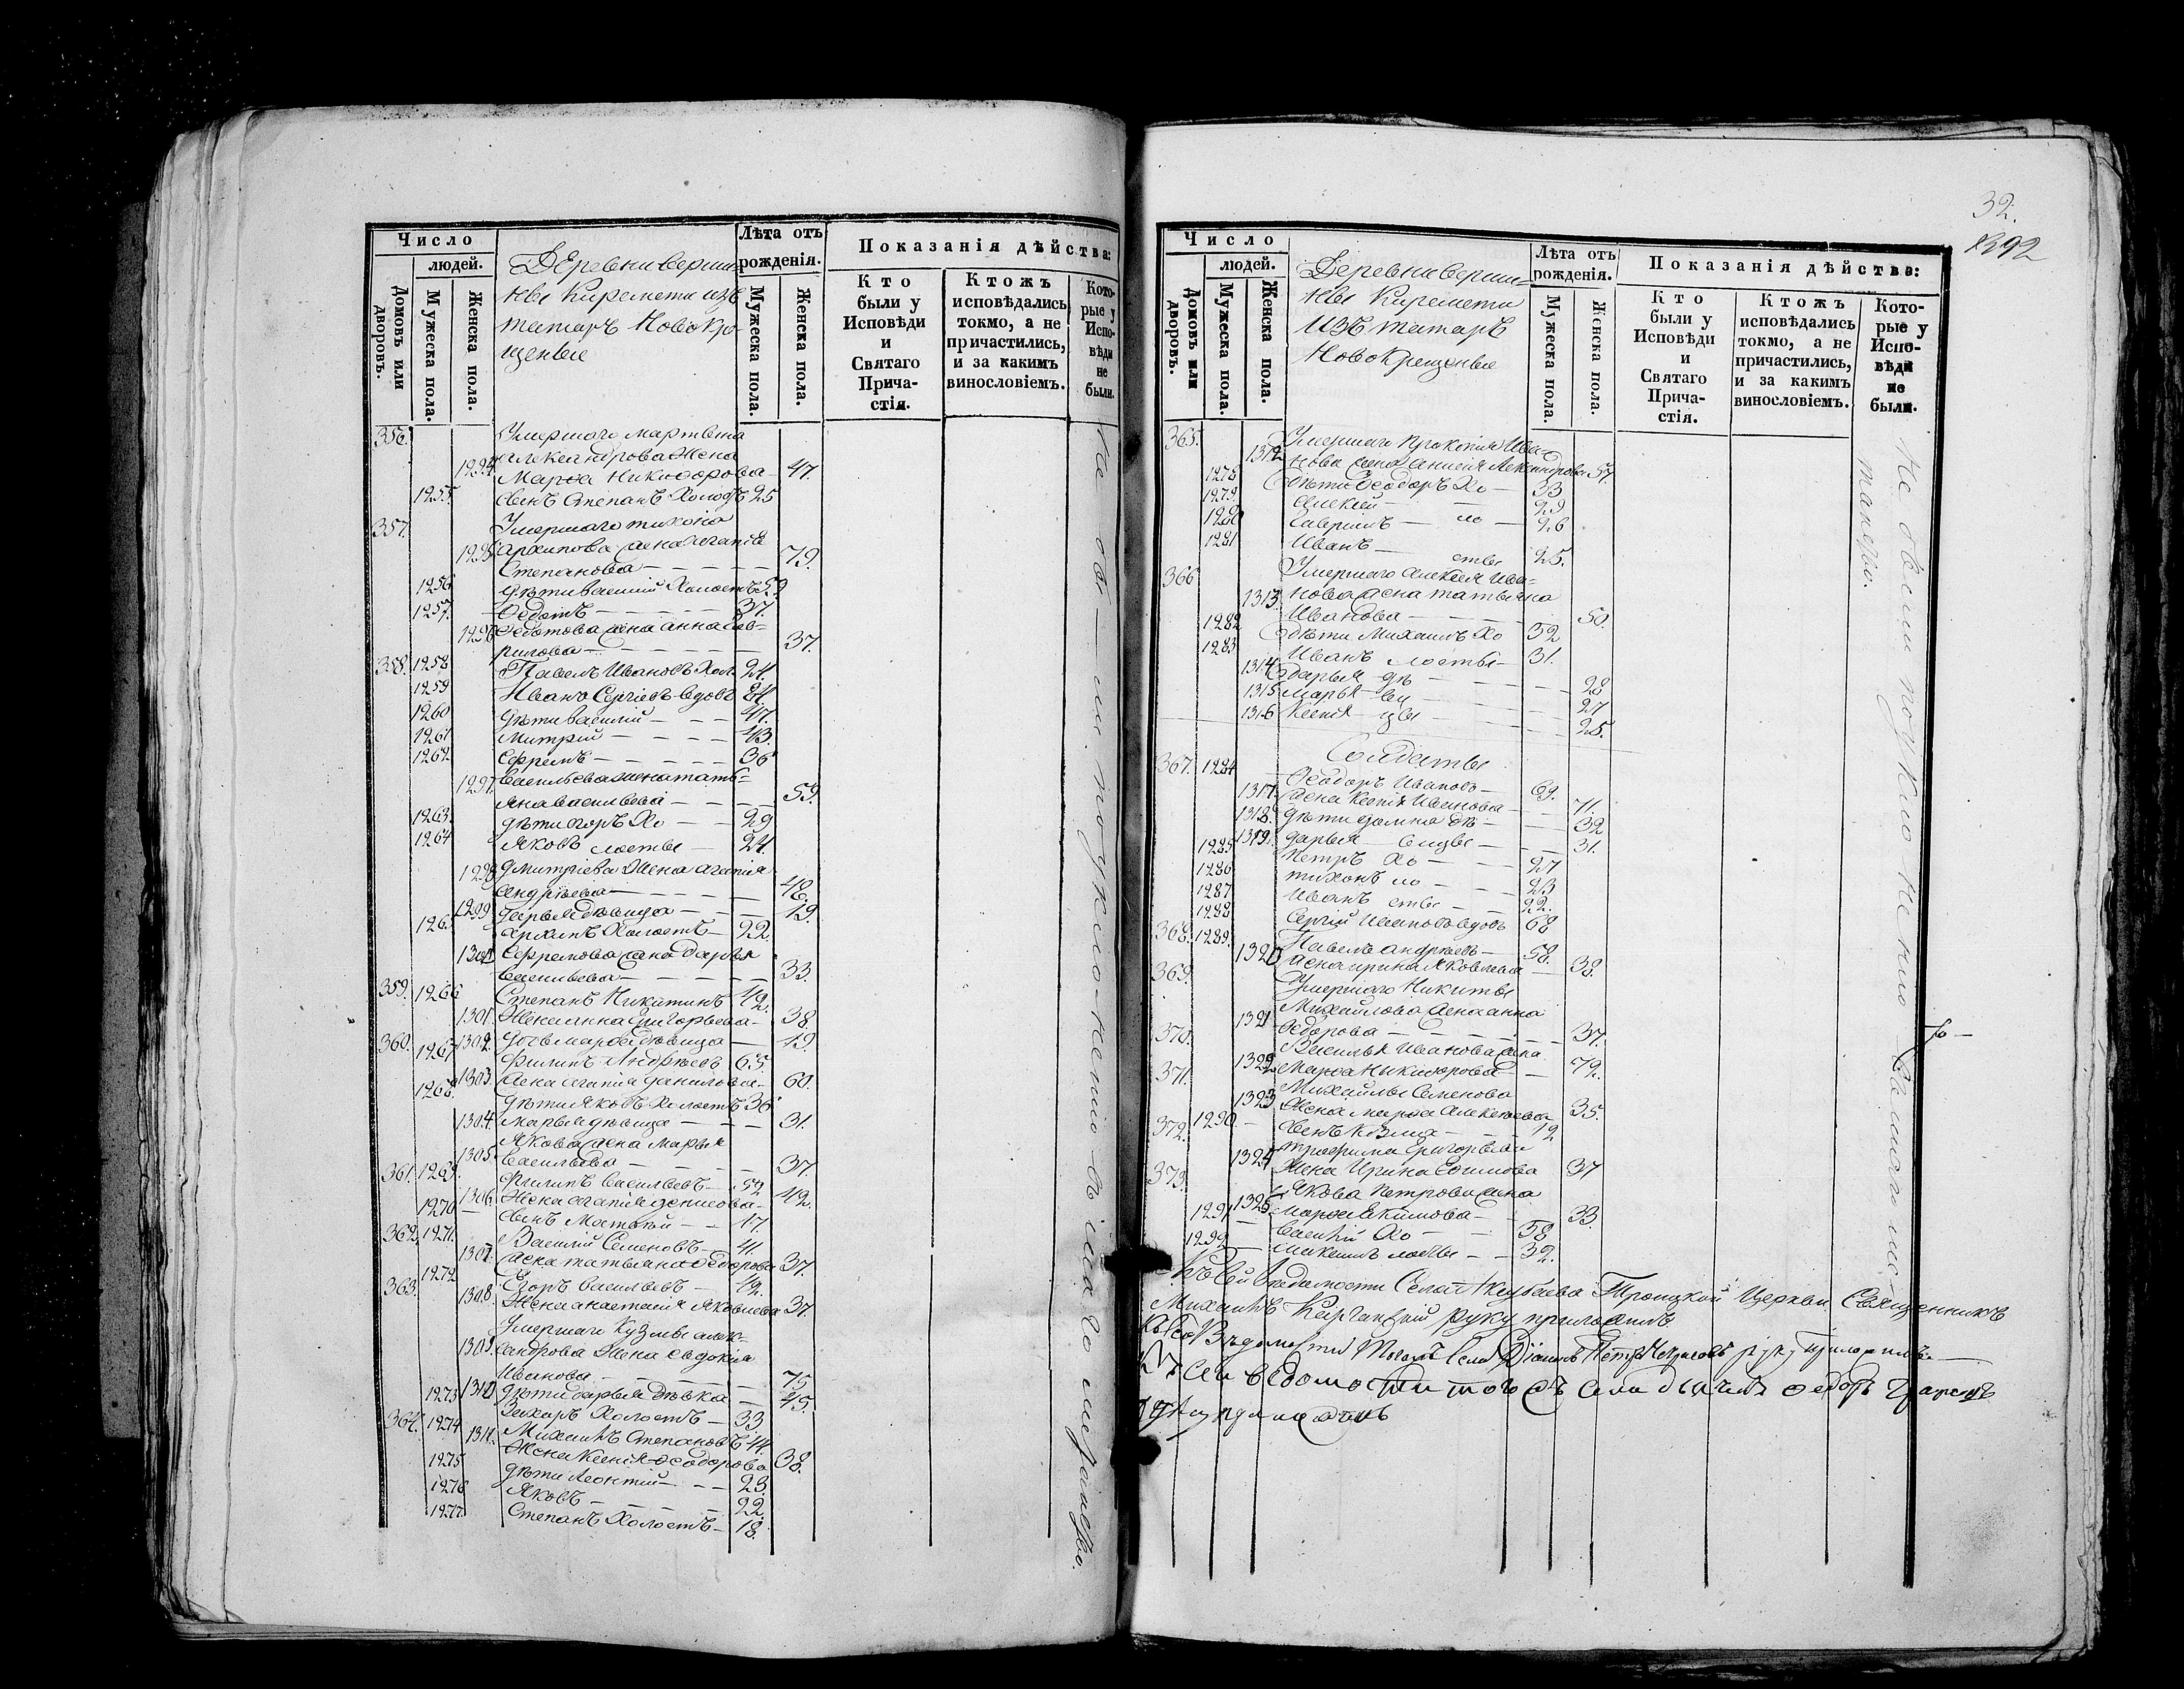 Число
людей.
Домовъ или дворовъ.
Мужеска пола.
Женска пола.
Деревни Верши-
ны Киремети изъ
татаръ Новокре
щеные
Лѣта отъ
рожденія.
Мужеска пола.
Женска пола.
Показанія дѣйства:
Кто
были у
Исповѣди
и
Святаго
Прича-
стія.
Ктожъ
исповѣдались
токмо, а не
причастились,
и за какимъ
винословіемъ.
Кото-
рые у
Испо-
вѣди
не
были.
356. Умершаго Мартына
Александрова Жена
1294 Марѳа Никифорова 47.
1255. сынъ Степанъ Холостъ 25
357. Умершаго Тихона
1295 Архипова жена Агапія
Степанова 79.
1256. дѣти Василий Холостъ 59
1257. Ѳедотъ 37.
1296 Ѳедотова жена Анна Гав-
рилова 37.
358. 1258 Павелъ Ивановъ Хол. 24.
1259 Иванъ Сергіевъ вдовъ 84
1260 дѣти Василий 47.
1261 Митрий 43.
1262. Ефремъ 36
1297. Васильева жена Тать-
яна Васильева 59.
1263. дѣти Егоръ Хо 29
1264 Яковъ лосты 24.
1298 Дмитріева Жена Агапія
Андрѣева 48.
1299 Дарья дѣвица 19.
1265 Архипъ Холостъ 22.
1300 Ефремова жена Дарья
Васильева 33.
359. 1266 Степанъ Никитинъ 42.
1301. Жена Анна Григорьева 38.
1302. дочь Марѳа дѣвица 19.
360. 1267 Филипъ Андрѣевъ 65.
1303. жена Агапія Данилова 60.
1268. дѣти Яковъ Холостъ 36
1304. Марья дѣвица 31.
Якова жена Марья
1305. Васильева 37.
361. 1269. Филипъ Васильевъ 52
1306. Жена Агапія Денисова 42.
1270 сынъ Матвѣй 17.
362. 1271. Василий Семеновъ 41.
1307. жена Татьяна Ѳедорова 37.
363. 1272 Егоръ Васильевъ 42.
1308. Жена Анастасия Яковлева 37.
Умершаго Кузмы Алек-
1309. сандрова Жена Евдокия
Иванова 75.
1310 дѣти Дарья дѣвка 45.
1273 Захаръ Холостъ 33.
364. 1274 Михаилъ Степановъ 44.
1311. Жена Ксенія Ѳеодорова 38.
1275 дѣти Леонтий 23.
1276 Яковъ 22.
1277. Степанъ Холостъ 18.
32.
392
Число
людей.
Домовъ или дворовъ.
Мужеска пола.
Женска пола.
Деревни Верши-
ны Киремети
изъ татаръ
Новокрещеные
Лѣта отъ
рожденія.
Мужеска пола.
Женска пола.
Показанія дѣйства:
Кто
были у
Исповѣди
и
Святаго
Прича-
стія.
Ктожъ
исповѣдались
токмо, а не
причастились,
и за какимъ
винословіемъ.
Кото-
рые у
Испо-
вѣди
не
были.
365. Умершаго Прокопія Ива-
1312 нова жена Анисия Александрова 57.
1278 дѣти Ѳеодоръ Хо 33
1279. Алексей 29
1280 Гаврилъ ло 26
1281 Иванъ сты 25.
366 Умершаго Алексея Ива-
1313. нова жена Татьяна
Иванова 50.
1282 дѣти Михаилъ Хо 32
1283 Иванъ лосты 31.
1314 Дарья дѣ 28
1315 Марья ви 27
1316 Ксенія цы 25.
Солдаты
367. 1284 Ѳеодоръ Ивановъ 69.
1317. жена Ксенія Иванова 71.
1318. дѣти Домна дѣ 32
1319. Дарья вицы 31.
1285 Петръ Хо 27
1286 Тихонъ ло 23
1287 Иванъ сты 22.
1288 Сергій Ивановъ вдовъ 68
368. 1289. Павелъ Андрѣевъ 58.
1320 жена Ирина Яковлева 38.
369. Умершаго Никиты
Михайлова жена Анна
1321 Ѳедорова 37.
370. Василья Иванова жена
1322 Марѳа Никифорова 72.
371. Михайлы Семенова
1323 Жена Марѳа Алексеева 35
1290 сынъ Козма 12
372. Трофима Григорьева
1324 Жена Ирина Ефимова 37
373. Якова Петрова жена
1325 Марѳа Якимова 33.
1291 Василий Хо 38
1292 Михаилъ лосты 32.
Къ сей Ведомости Села Акзубаева Троицкой Церкви Священникъ
Михаилъ руку приложилъ
Къ сей Вѣдомости Тогожъ Села Діаконъ Петръ руку приложилъ
Къ сей ведомости тогожъ села дьячекъ Ѳедоръ
руку приложилъ